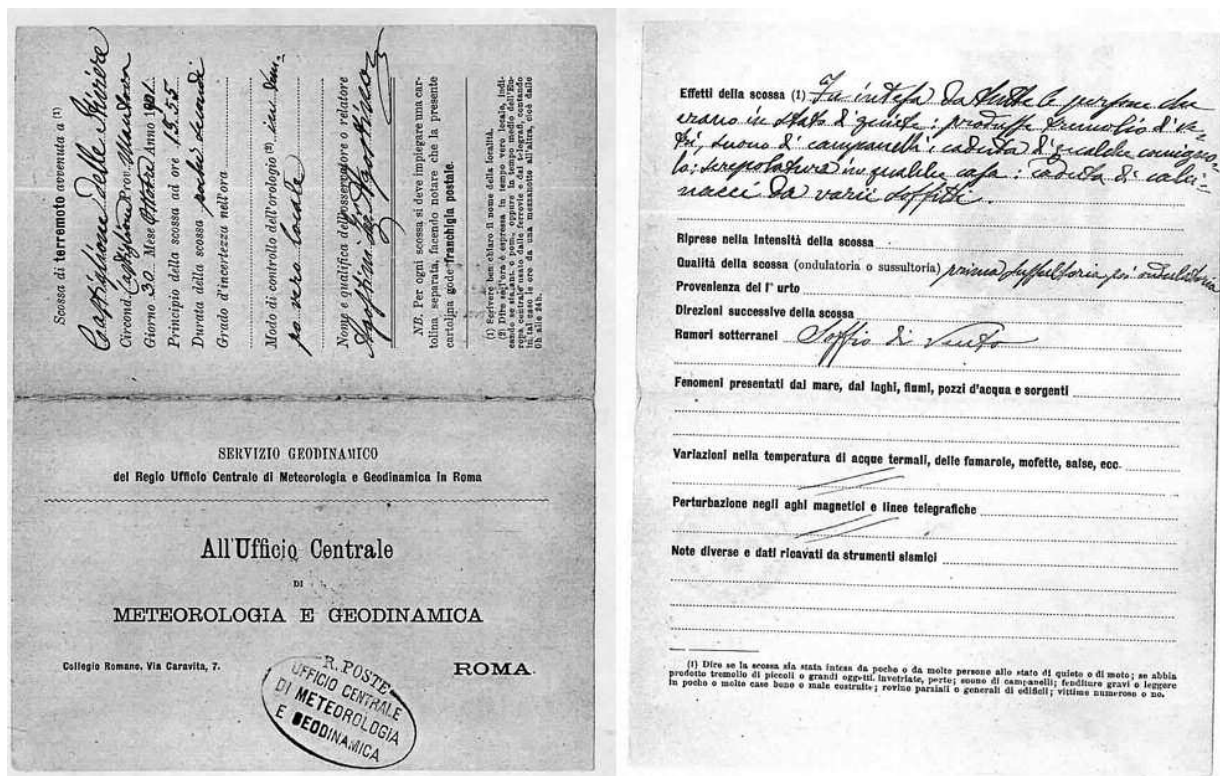 Scossa di terremoto avvenuta a (1)
Castiglione delle Stiviere
Circond. Castiglione Prov. Mantova
Giorno 30 Mese Ottobre Anno 1901
Principio della scossa ad ore 15.55
Durata della scossa secondi
Grado d'incertezza nell'ora
Modo di controllo dell'orologio (2) in tem-
po vero locale
Nome e qualifica dell'osservatore o relatore
NB. Per ogni scossa si deve impiegare una car-
tolina separata, facendo notare che la presente
cartolina gode franchigia postale.
(1) Scrivere ben chiaro il nome della località.
(2) Dire se l'ora è espressa in tempo vero locale, indi-
cando se sia ant. o pom., oppure in tempo medio dell'Eu-
ropa centrale usato dalle ferrovie e dai telegrafi, contando
in tal caso le ore da una mezzanotte all'altra, cioè dalle
0h alle 24h.
SERVIZIO GEODINAMICO
del Regio Ufficio Centrale di Meteorologia e Geodinamica in Roma
All'Ufficio Centrale
DI
METEOROLOGIA E GEODINAMICA
Collegio Romano. Via Caravita, 7.
ROMA.
R. POSTE
UFFICIO CENTRALE
DI METEOROLOGIA
E GEODINAMICA
Effetti della scossa (1) Fu intesa da tutte le persone che
erano in stato di quiete: produsse tremolio di ve-
tri, suono di campanelli; caduta di qualche comigno-
lo; screpolatura in qualche casa: caduta di calci-
nacci da varii soffitti.
Riprese nella intensità della scossa
Qualità della scossa (ondulatoria o sussultoria) prima sussultoria, poi ondulatoria
Provenienza del I° urto
Direzioni successive della scossa
Rumori sotterranei Soffio di Vento
Fenomeni presentati dal mare, dai laghi, fiumi, pozzi d'acqua e sorgenti
Variazioni nella temperatura di acque termali, delle fumarole, mofette, salse, ecc.
Perturbazione negli aghi magnetici e linee telegrafiche
Note diverse e dati ricavati da strumenti sismici
(1) Dire se la scossa sia stata intesa da poche o da molte persone allo stato di quiete o di moto; se abbia
prodotto tremolio di piccoli o grandi oggetti, invetriate, porte; suono di campanelli; fenditure gravi o leggere
in poche o molte case bene o male costruite; rovine parziali o generali di edifici; vittime numerose o no.